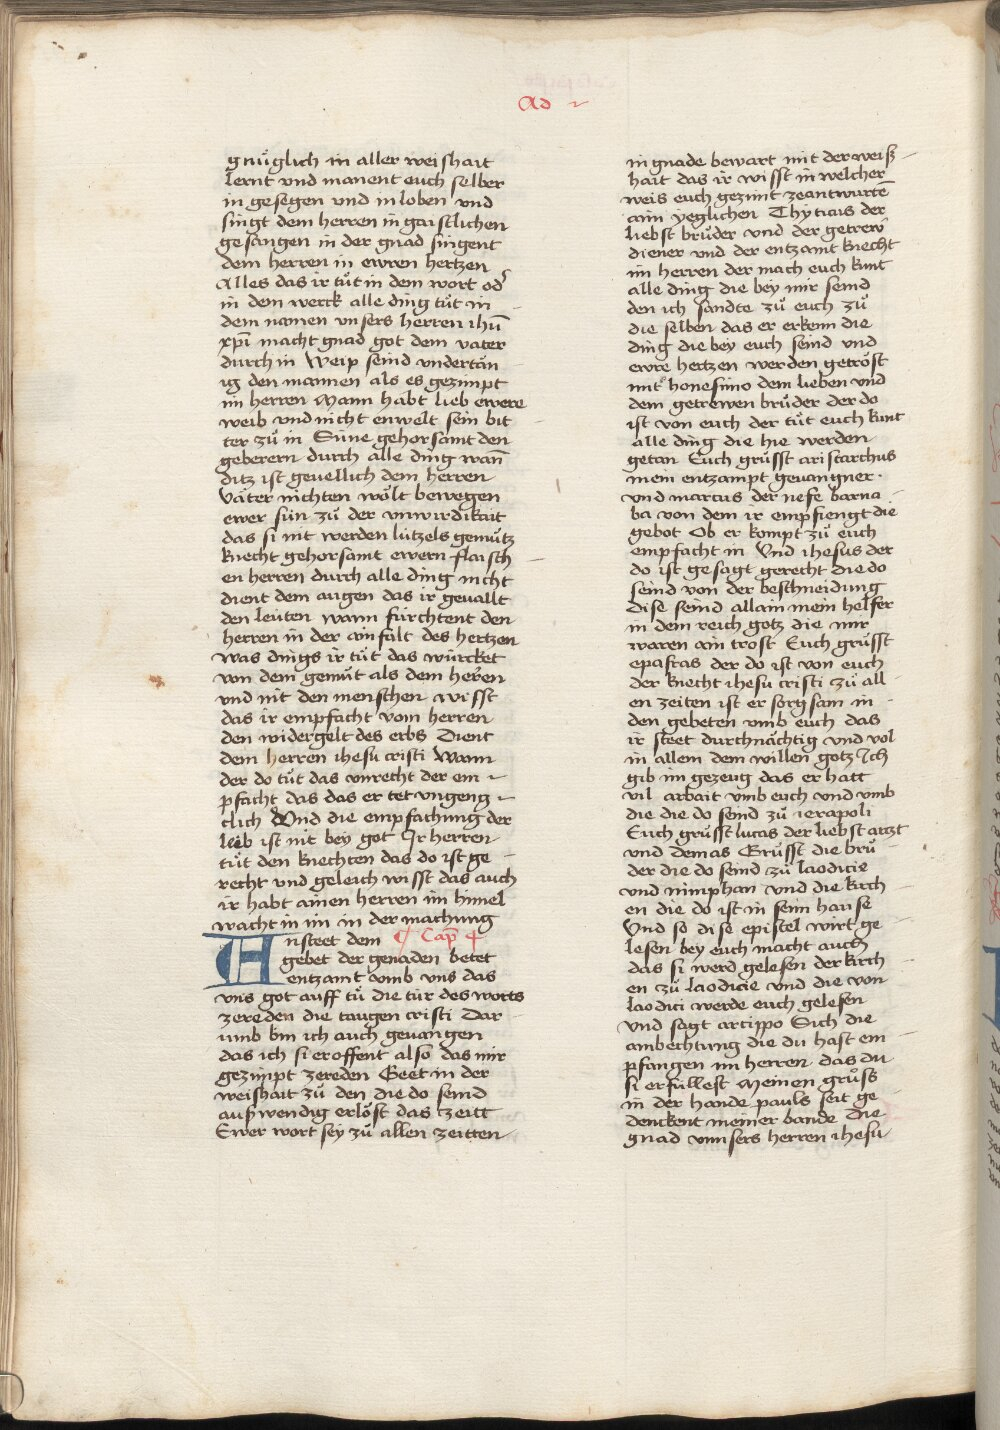 Ad
gnuͤglich in aller weishait
lernt vnd manent euch selber
in gesegen vnd in loben vnd
singt dem herren in gaistlichen
gesangen in der gnad singent
dem herren in ewren hertzen
Alles das ir tuͤt in dem wort od᷑
in dem werck alle ding tuͤt in
dem namen vnsers herren ihū
xp̄i macht gnad got dem vater
durch in Weip seind vndertaͤn
ig den mannen als es gezimpt
im herren Mann habt lieb ewere
weib vnd nicht enwelt sein bit
ter zuͤ in Suͤne gehorsamt den
geberern durch alle ding wañ
ditz ist geuellich dem herren
Vaͤter nichten woͤlt bewegen
ewer suͤn zuͤ der vnwirdikait
das si nit werden luͤtzels gemuͤtz
knecht gehorsamt ewern flaisch
en herren durch alle ding nicht
dient dem augen das ir geuallt
den leuͤten wann fuͤrchtent den
herren in der ainfalt des hertzen
was dings ir tuͤt das wuͤrcket
von dem gemuͤt als dem herꝛen
vnd nit den menschen wisst
das ir empfacht vom herren
den widergelt des erbs Dient
dem herren ihesu cristi Wann
der do tuͤt das vnrecht der em
pfacht das das er tet vngeng
clich Vnd die empfachung der
leib ist nit bey got Ir herren
tuͤt den knechten das do ist ge
recht vnd geleich wisst das auch
ir habt ainen herren im himel
wacht in im in der machung
Ansteet dem Cap̄ 4
gebet der genaden betet
entzamt vmb vns das
vns got auff tuͤ die tuͤr des worts
zereden die taugen cristi Dar
vmb bin ich auch geuangen
das ich si eroffent also das mir
gezimpt zereden Geet in der
weishait zuͤ den die do seind
auswendig erloͤst das zeitt
Ewer wort sey zuͤ allen zeitten
in gnade bewart mit der weisz
hait das ir wisst in welcher
weis euch gezimt zeantwurtē
aim yeglichen Thyticus der
liebst bruͤder vnd der getrew
diener vnd der entzamt knecht
im herren der mach euch kunt
alle ding die bey mir seind
den ich sandte zuͤ euch zuͤ
die selben das er erkenn die
ding die bey euch seind vnd
ewre hertzen werden getroͤst
mit honesimo dem lieben vnd
dem getrewen bruͤder der do
ist von euch der tuͤt euch kunt
alle ding die hie werden
getan Euch gruͤsst aristarchus
mein entzampt geuangner
vnd marcus der nefe barna
ba von dem ir empfiengt die
gebot Ob er kompt zuͤ euch
empfacht in Vnd ihesus der
do ist gesagt gerecht die do
seind von der beschneidung
dise seind allain mein helfer
in dem reich gotz die mir
waren ain trost Euch gruͤsst
epafras der do ist von euch
der knecht ihesu cristi zuͤ all
en zeiten ist er sorgsam in
den gebeten vmb euch das
ir steet durchnaͤchtig vnd vol
in allem dem willen gotz Ich
gib im gezeug das er hatt
vil arbait vmb euch vnd vmb
die die do seind zuͤ ierapoli
Euch gruͤsst lucas der liebst artzt
vnd demas Gruͤsst die bruͤ
der die do seind zuͤ laodicie
vnd nimphan vnd die kirch
en die do ist in seim hause
Vnd so dise epistel wirt ge
lesen bey euch macht auch
das si werd gelesen der kirch
en zuͤ laodicie vnd die von
laodici werde euch gelesen
vnd sagt artippo Sich die
ambechtung die du hast em
pfangen im herren das du
si erfuͤllest Meinen gruͤss
in der hande pauls seit ge
denckent meiner bande Die
gnad vnnsers herren ihesu